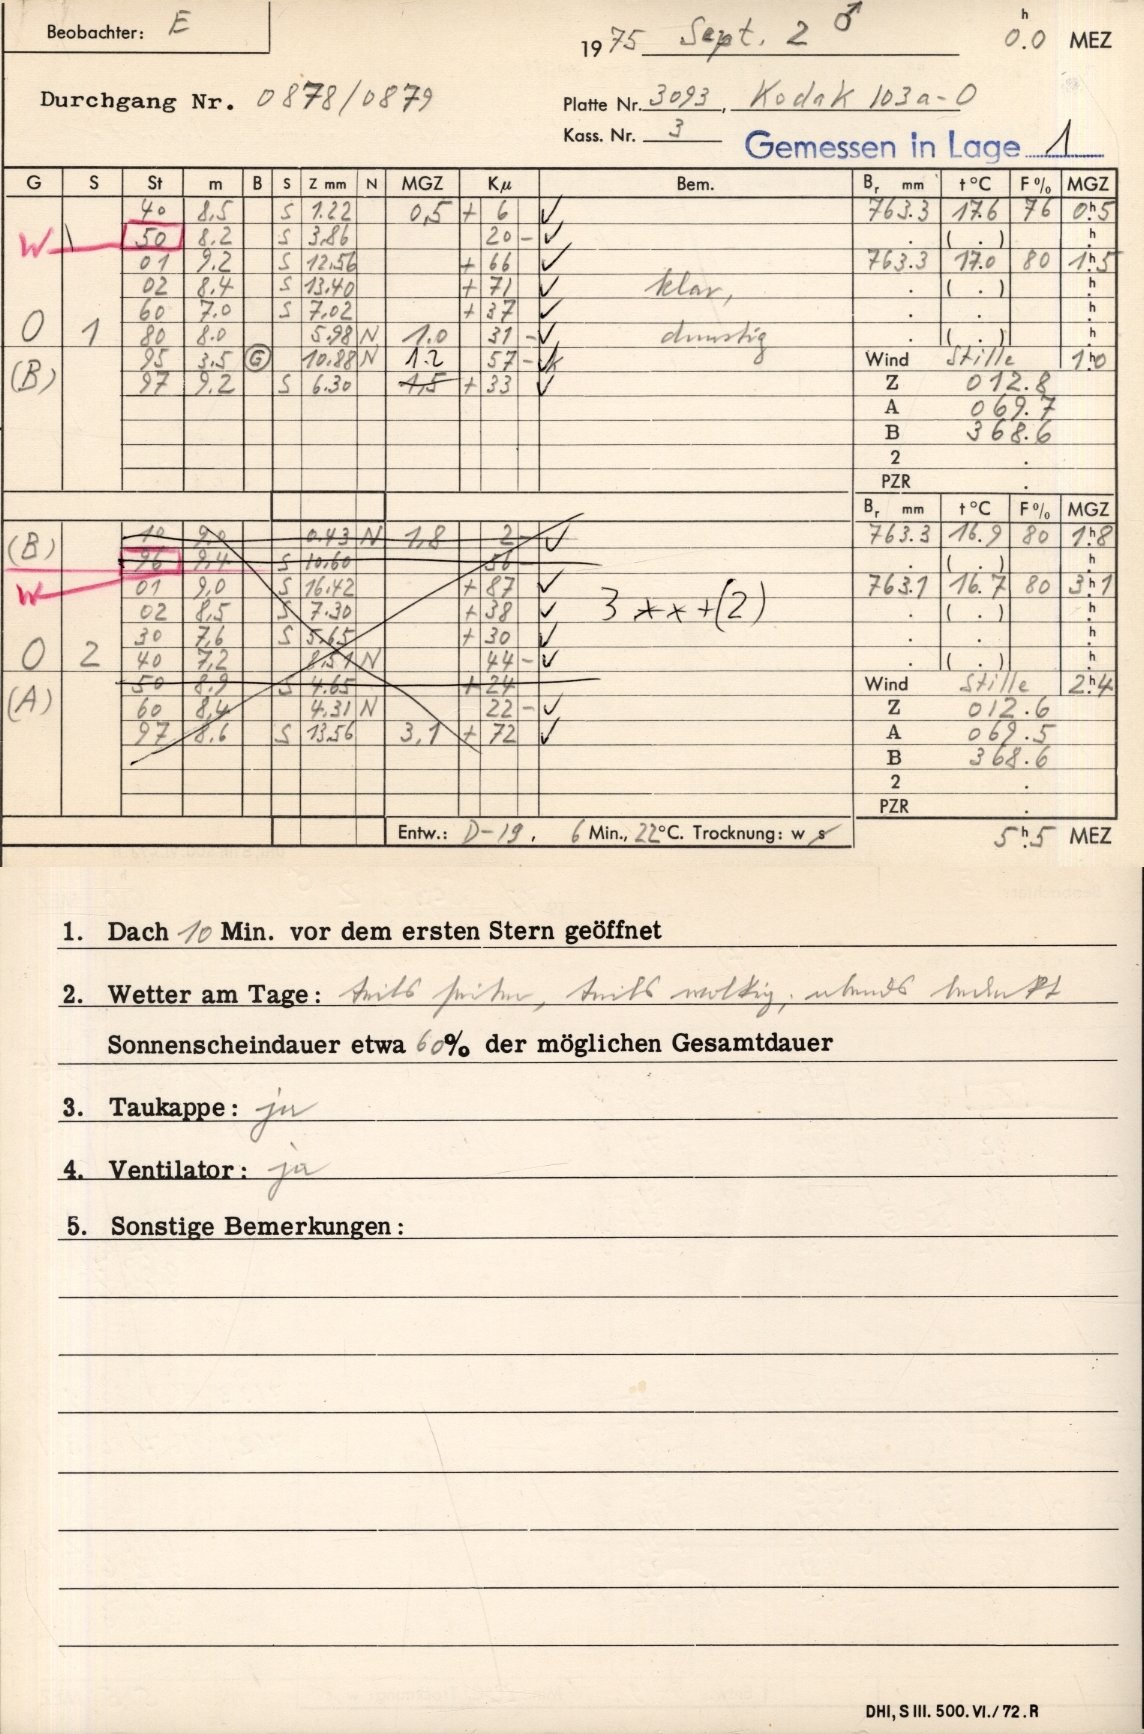 Beobachter: E
1975 Sept. 2 ♂ 0.0 h MEZ
Durchgang Nr. 0878/0879
Platte Nr. 3093, Kodak 103a-O
Kass. Nr. 3 Gemessen in Lage 1
G S St m B S Z mm N MGZ Kμ Bem. Br mm t °C F % MGZ
40 8,5 S 1.22 0,5 + 6 ✓ 763.3 17.6 76 0h.5
W 50 8.2 S 3.86 20 - ✓ . ( . ) h
01 9.2 S 12.56 + 66 ✓ 763.3 17.0 80 1h.5
02 8.4 S 13.40 + 71 ✓ klar, . ( . ) h
60 7.0 S 7.02 + 37 ✓ . . h
0 1 80 8.0 5.98 N 1.0 31 - ✓ dunstig . ( . ) h
95 3,5 G 10.88 N 1.2 57 - ✓ Wind Stille 1h.0
(B) 97 9.2 S 6.30 1,5 + 33 ✓ Z 012.8
A 069.7
B 368.6
2 .
PZR .
Br mm t °C F % MGZ
(B) 10 9.0 0.43 N 1,8 2 - ✓ 763.3 16.9 80 1h.8
96 9,4 S 10.60 56 - . ( . ) h
W 01 9,0 S 16.42 + 87 ✓ 763.1 16.7 80 3h.1
02 8,5 S 7.30 + 38 ✓ 3 **+(2) . ( . ) h
30 7,6 S 5.65 + 30 ✓ . . h
0 2 40 7,2 8.51 N 44 - ✓ . ( . ) h
50 8.9 S 4.65 + 24 Wind Stille 2h.4
(A) 60 8,4 4.31 N 22 - ✓ Z 012.6
97 8.6 S 13.56 3,1 + 72 ✓ A 069.5
B 368.6
2 .
PZR .
Entw.: D-19, 6 Min., 22°C. Trocknung: w s 5h.5 MEZ
1. Dach 10 Min. vor dem ersten Stern geöffnet
2. Wetter am Tage: teils heiter, teils wolkig, abends bedeckt
Sonnenscheindauer etwa 60% der möglichen Gesamtdauer
3. Taukappe: ja
4. Ventilator: ja
5. Sonstige Bemerkungen:
DHI, S III. 500. VI./72. R